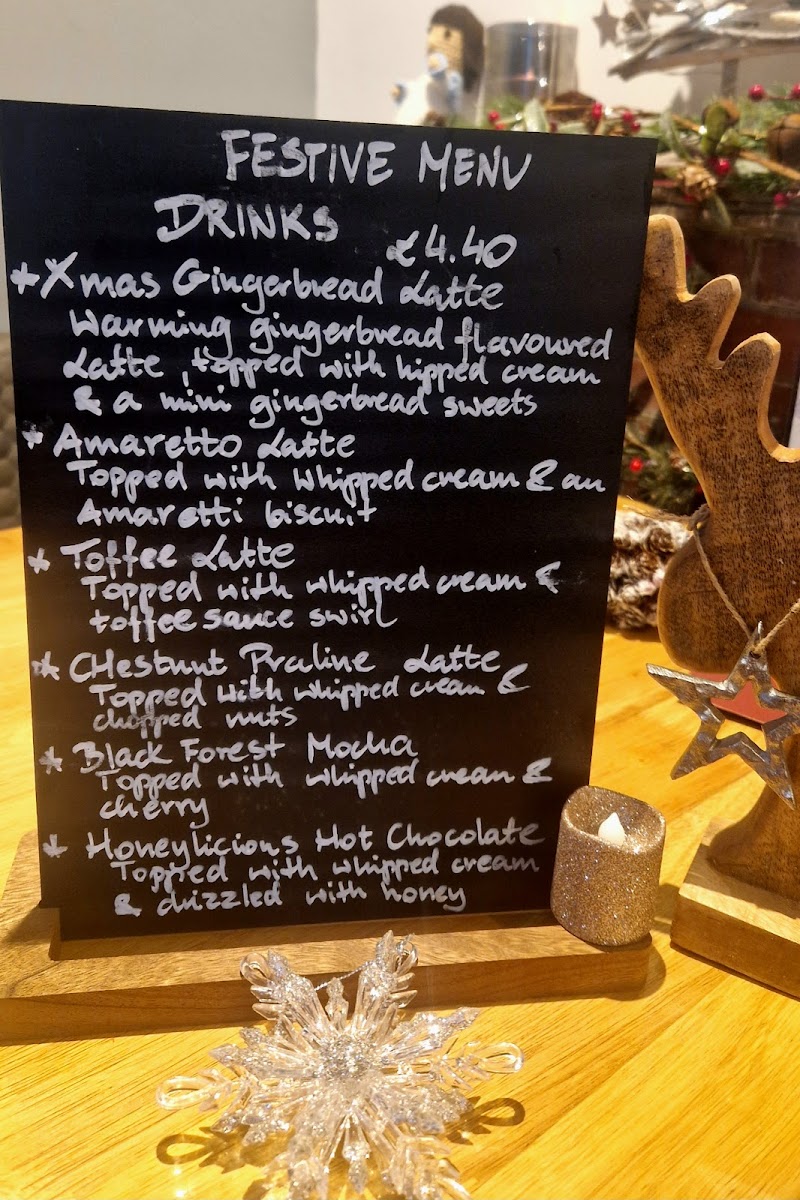 FESTIVE MENU
DRINKS
£4.40
* Xmas Gingerbread Latte
Warming gingerbread flavoured
Latte, topped with hipped cream
& a mini gingerbread sweets
* Amaretto Latte
Topped with whipped cream & an
Amaretti biscuit
* Toffee Latte
Topped with whipped cream &
toffee sauce swirl
* CHestnut Praline Latte
Topped with whipped cream &
chopped nuts
* Black Forest Mocha
Topped with whipped cream &
cherry
* Honeylicious Hot Chocolate
Topped with whipped cream
& drizzled with honey